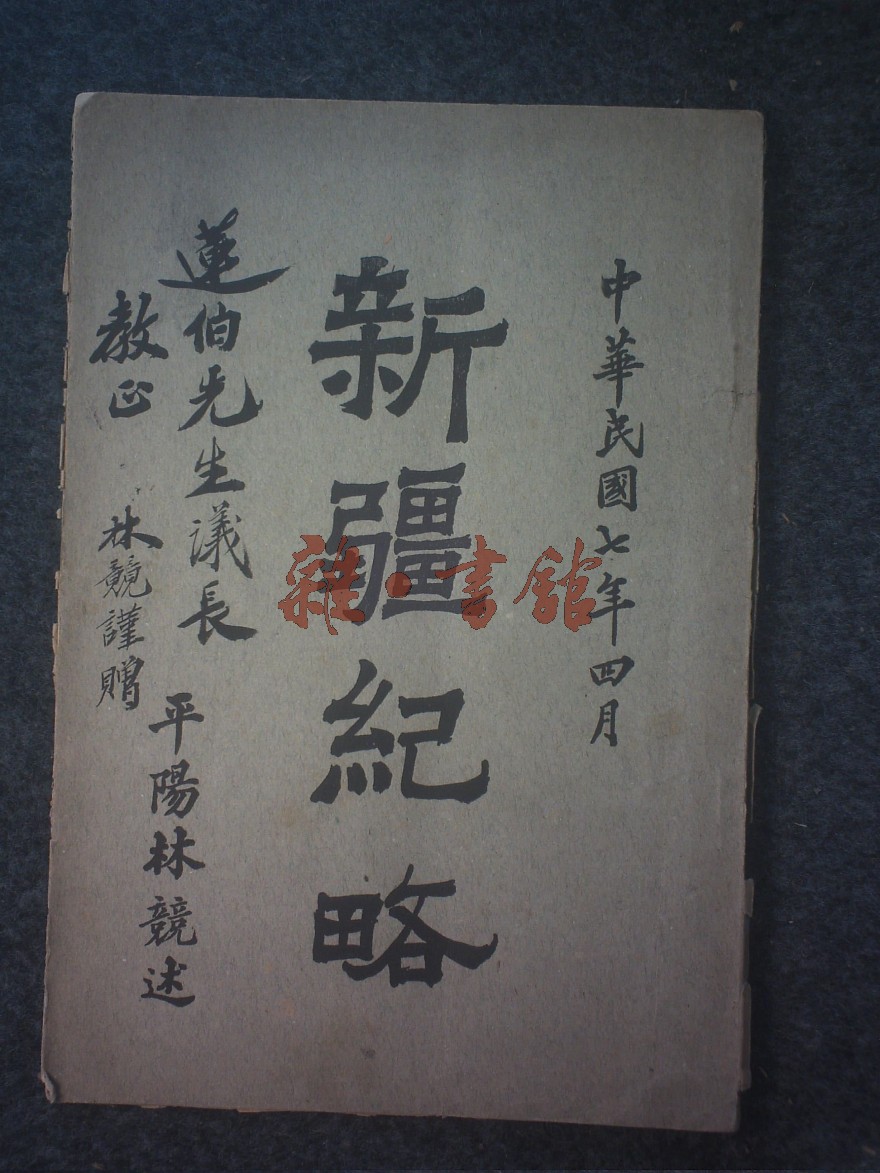 中華民國七年四月
新疆紀略
平陽林競述
蓮伯先生議長
教正
林競謹贈
雜·書館